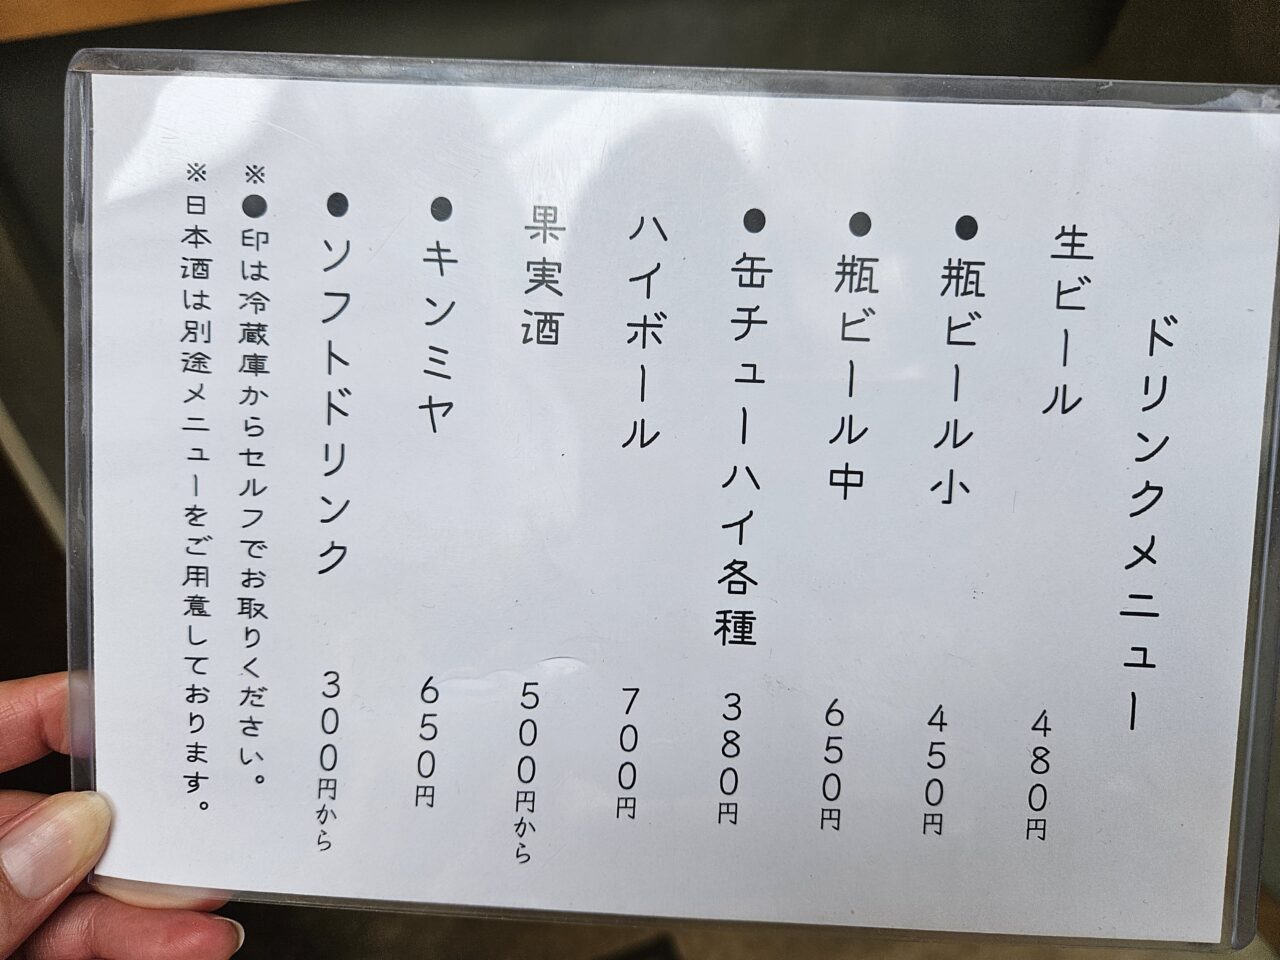 ドリンクメニュー
生ビール 480円
●瓶ビール小 450円
●瓶ビール中 650円
●缶チューハイ各種 380円
ハイボール 700円
果実酒 500円から
●キンミヤ 650円
●ソフトドリンク 300円から
※●印は冷蔵庫からセルフでお取りください。
※日本酒は別途メニューをご用意しております。